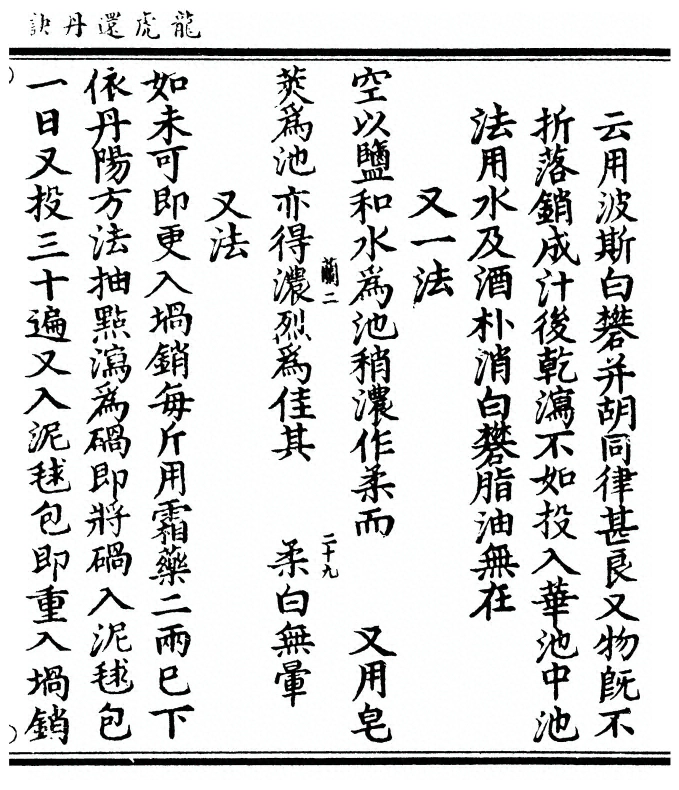 龍虎還丹訣
云用波斯白礬并胡同律甚良又物旣不
折落銷成汁後乾瀉不如投入華池中池
法用水及酒朴消白礬脂油無在
又一法
空以鹽和水爲池稍濃作柔而 又用皂
莢爲池亦得濃烈爲佳其 柔白無暈
蘭二 二十九
又法
如未可即更入堝銷每斤用霜藥二兩巳下
依丹陽方法抽點瀉爲碢即將碢入泥毬包
一日又投三十遍又入泥毬包即重入堝銷